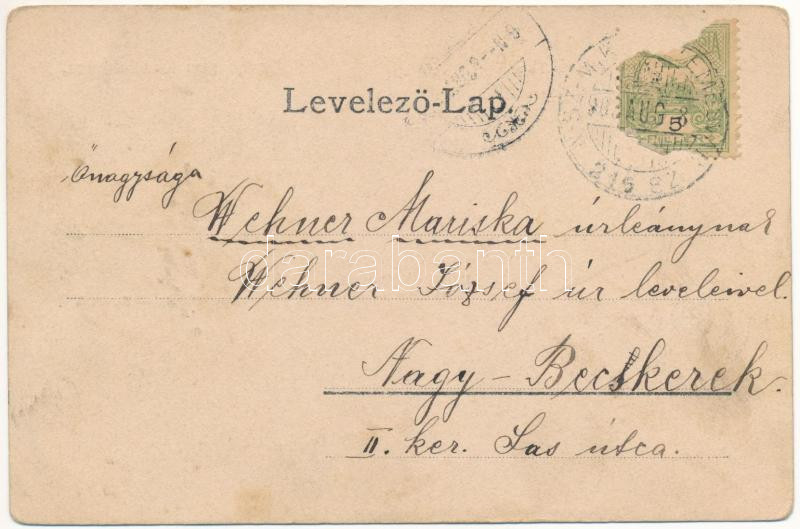 Levelező-Lap.
Önagysága
Wehner Mariska úrleánynak
Wehner József úr leveleivel.
Nagy-Becskerek.
II. ker. Sas útca.
darabanth
AUG
5
215 SZ